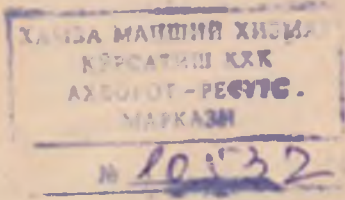 ҲАМЗА МАИШИЙ ХИЗМАТ
КЎРСАТИШ КХК
АХБОРОТ-РЕСУРС.
МАРКАЗИ
№ 10532